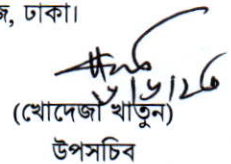 জ, ঢাকা।
(খোদেজা খাতুন)
উপসচিব